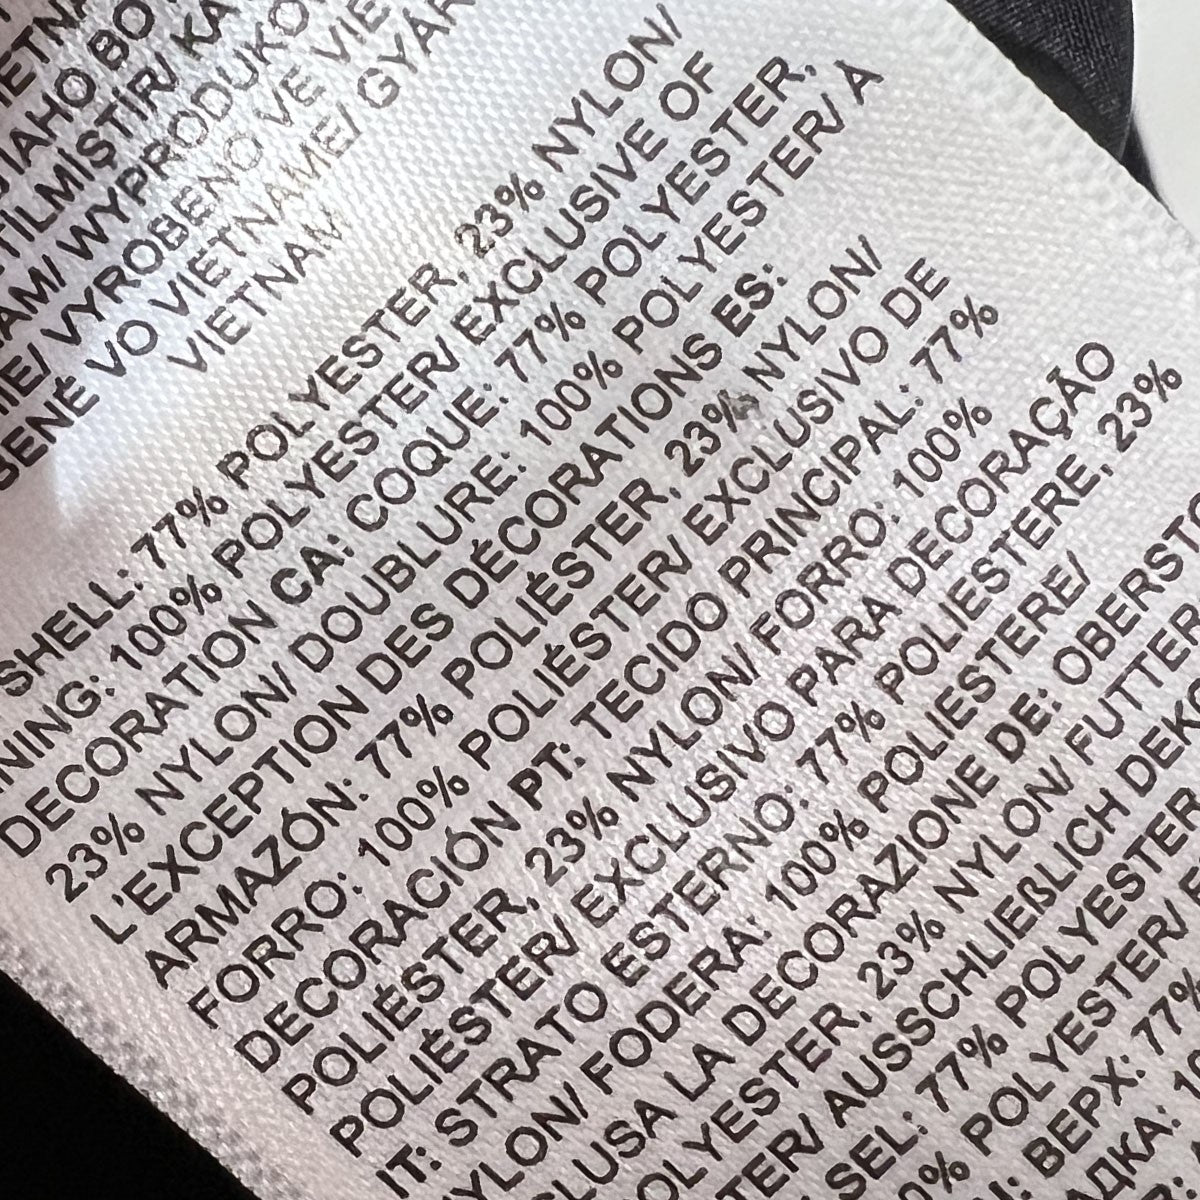 IAHO BO
TILMIŞTIR/ KA
AM/ WYPRODUKO
ME/ VYROBENO VE VIE
BENÉ VO VIETNAME/ GYÁR
VIETNAM
SHELL: 77% POLYESTER, 23% NYLON/
NING: 100% POLYESTER/ EXCLUSIVE OF
DECORATION CA: COQUE: 77% POLYESTER,
23% NYLON/ DOUBLURE: 100% POLYESTER/ À
L'EXCEPTION DES DÉCORATIONS ES:
ARMAZÓN: 77% POLIÉSTER, 23% NYLON/
FORRO: 100% POLIÉSTER/ EXCLUSIVO DE
DECORACIÓN PT: TECIDO PRINCIPAL: 77%
POLIÉSTER, 23% NYLON/ FORRO: 100%
POLIÉSTER/ EXCLUSIVO PARA DECORAÇÃO
IT: STRATO ESTERNO: 77% POLIESTERE, 23%
YLON/ FODERA: 100% POLIESTERE/
LUSA LA DECORAZIONE DE: OBERST
OLYESTER, 23% NYLON/ FUTTER
TER/ AUSSCHLIEßLICH DEK
SEL: 77% POLYESTER
0% POLYESTER/
ВЕРХ: 77%
ДКА: 10